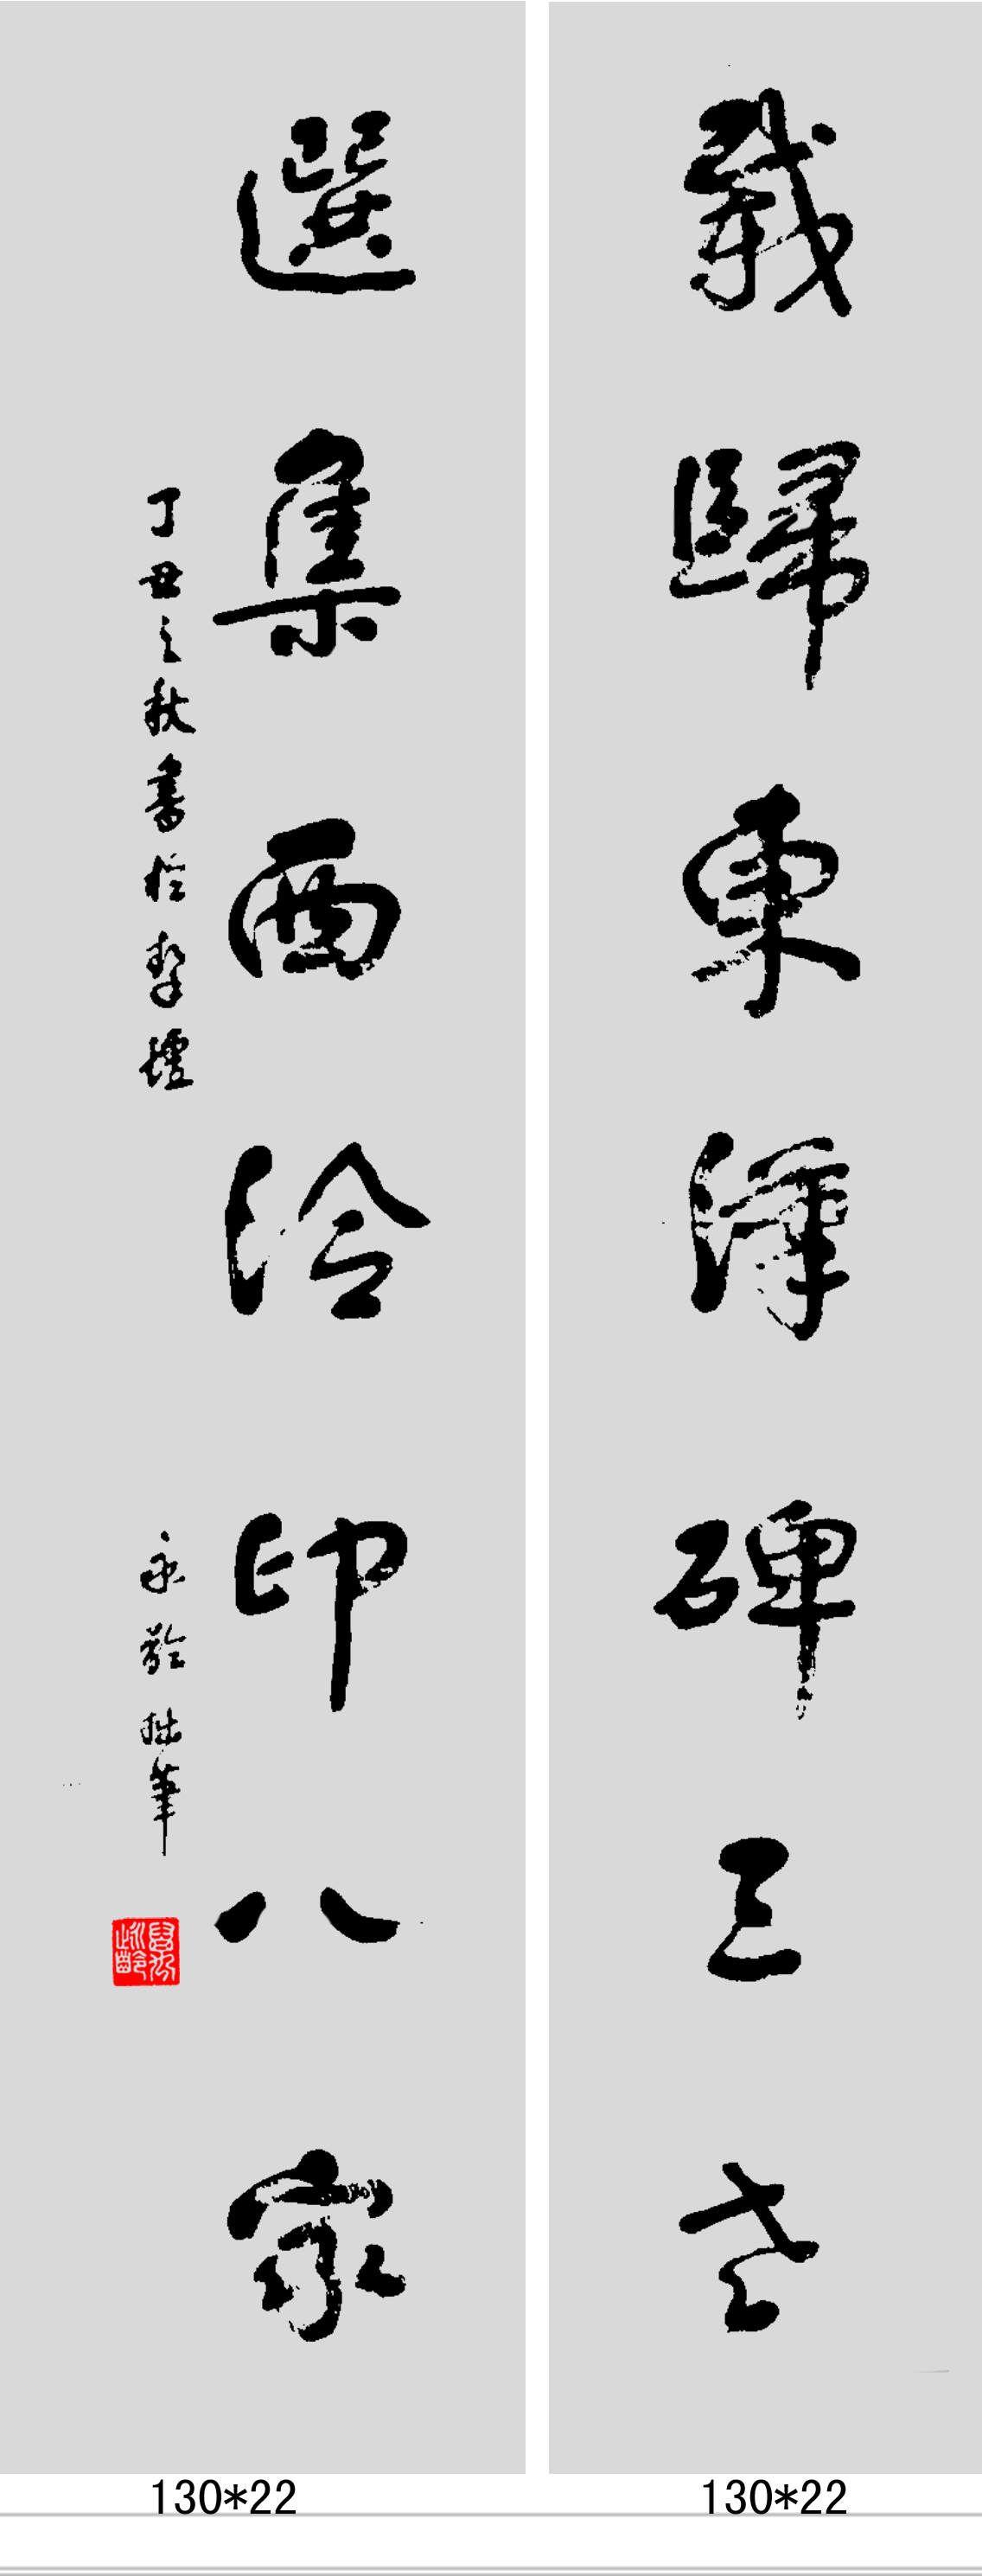 載歸東漢碑三老
選集西泠印八家
丁丑之秋書於
永齡拙筆
130*22
130*22